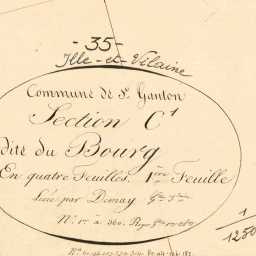 - 35 -
Ille-et-Vilaine
Commune de St. Ganton
Section C1
dite du Bourg
En quatre Feuilles. 1ère Feuille
Levée par Demay
N.° 1er à 360.
1
1250